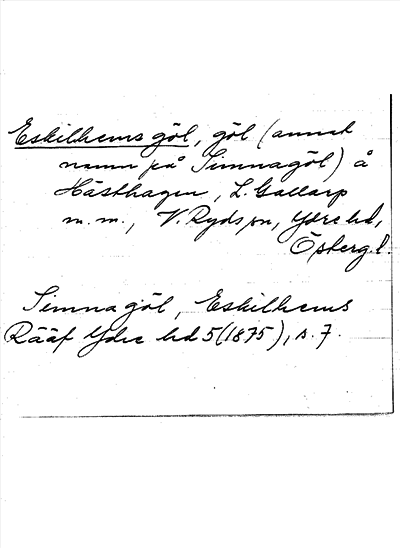 Eskilhems göl, göl (annat
namn på Simnagöl) å
Hästhagen, L. Gallarp
m.m., V. Ryds sn, Ydre hd,
Östergl.
Simnagöl, Eskilhems
Rääf Ydre hd 5 (1875), s. 7.